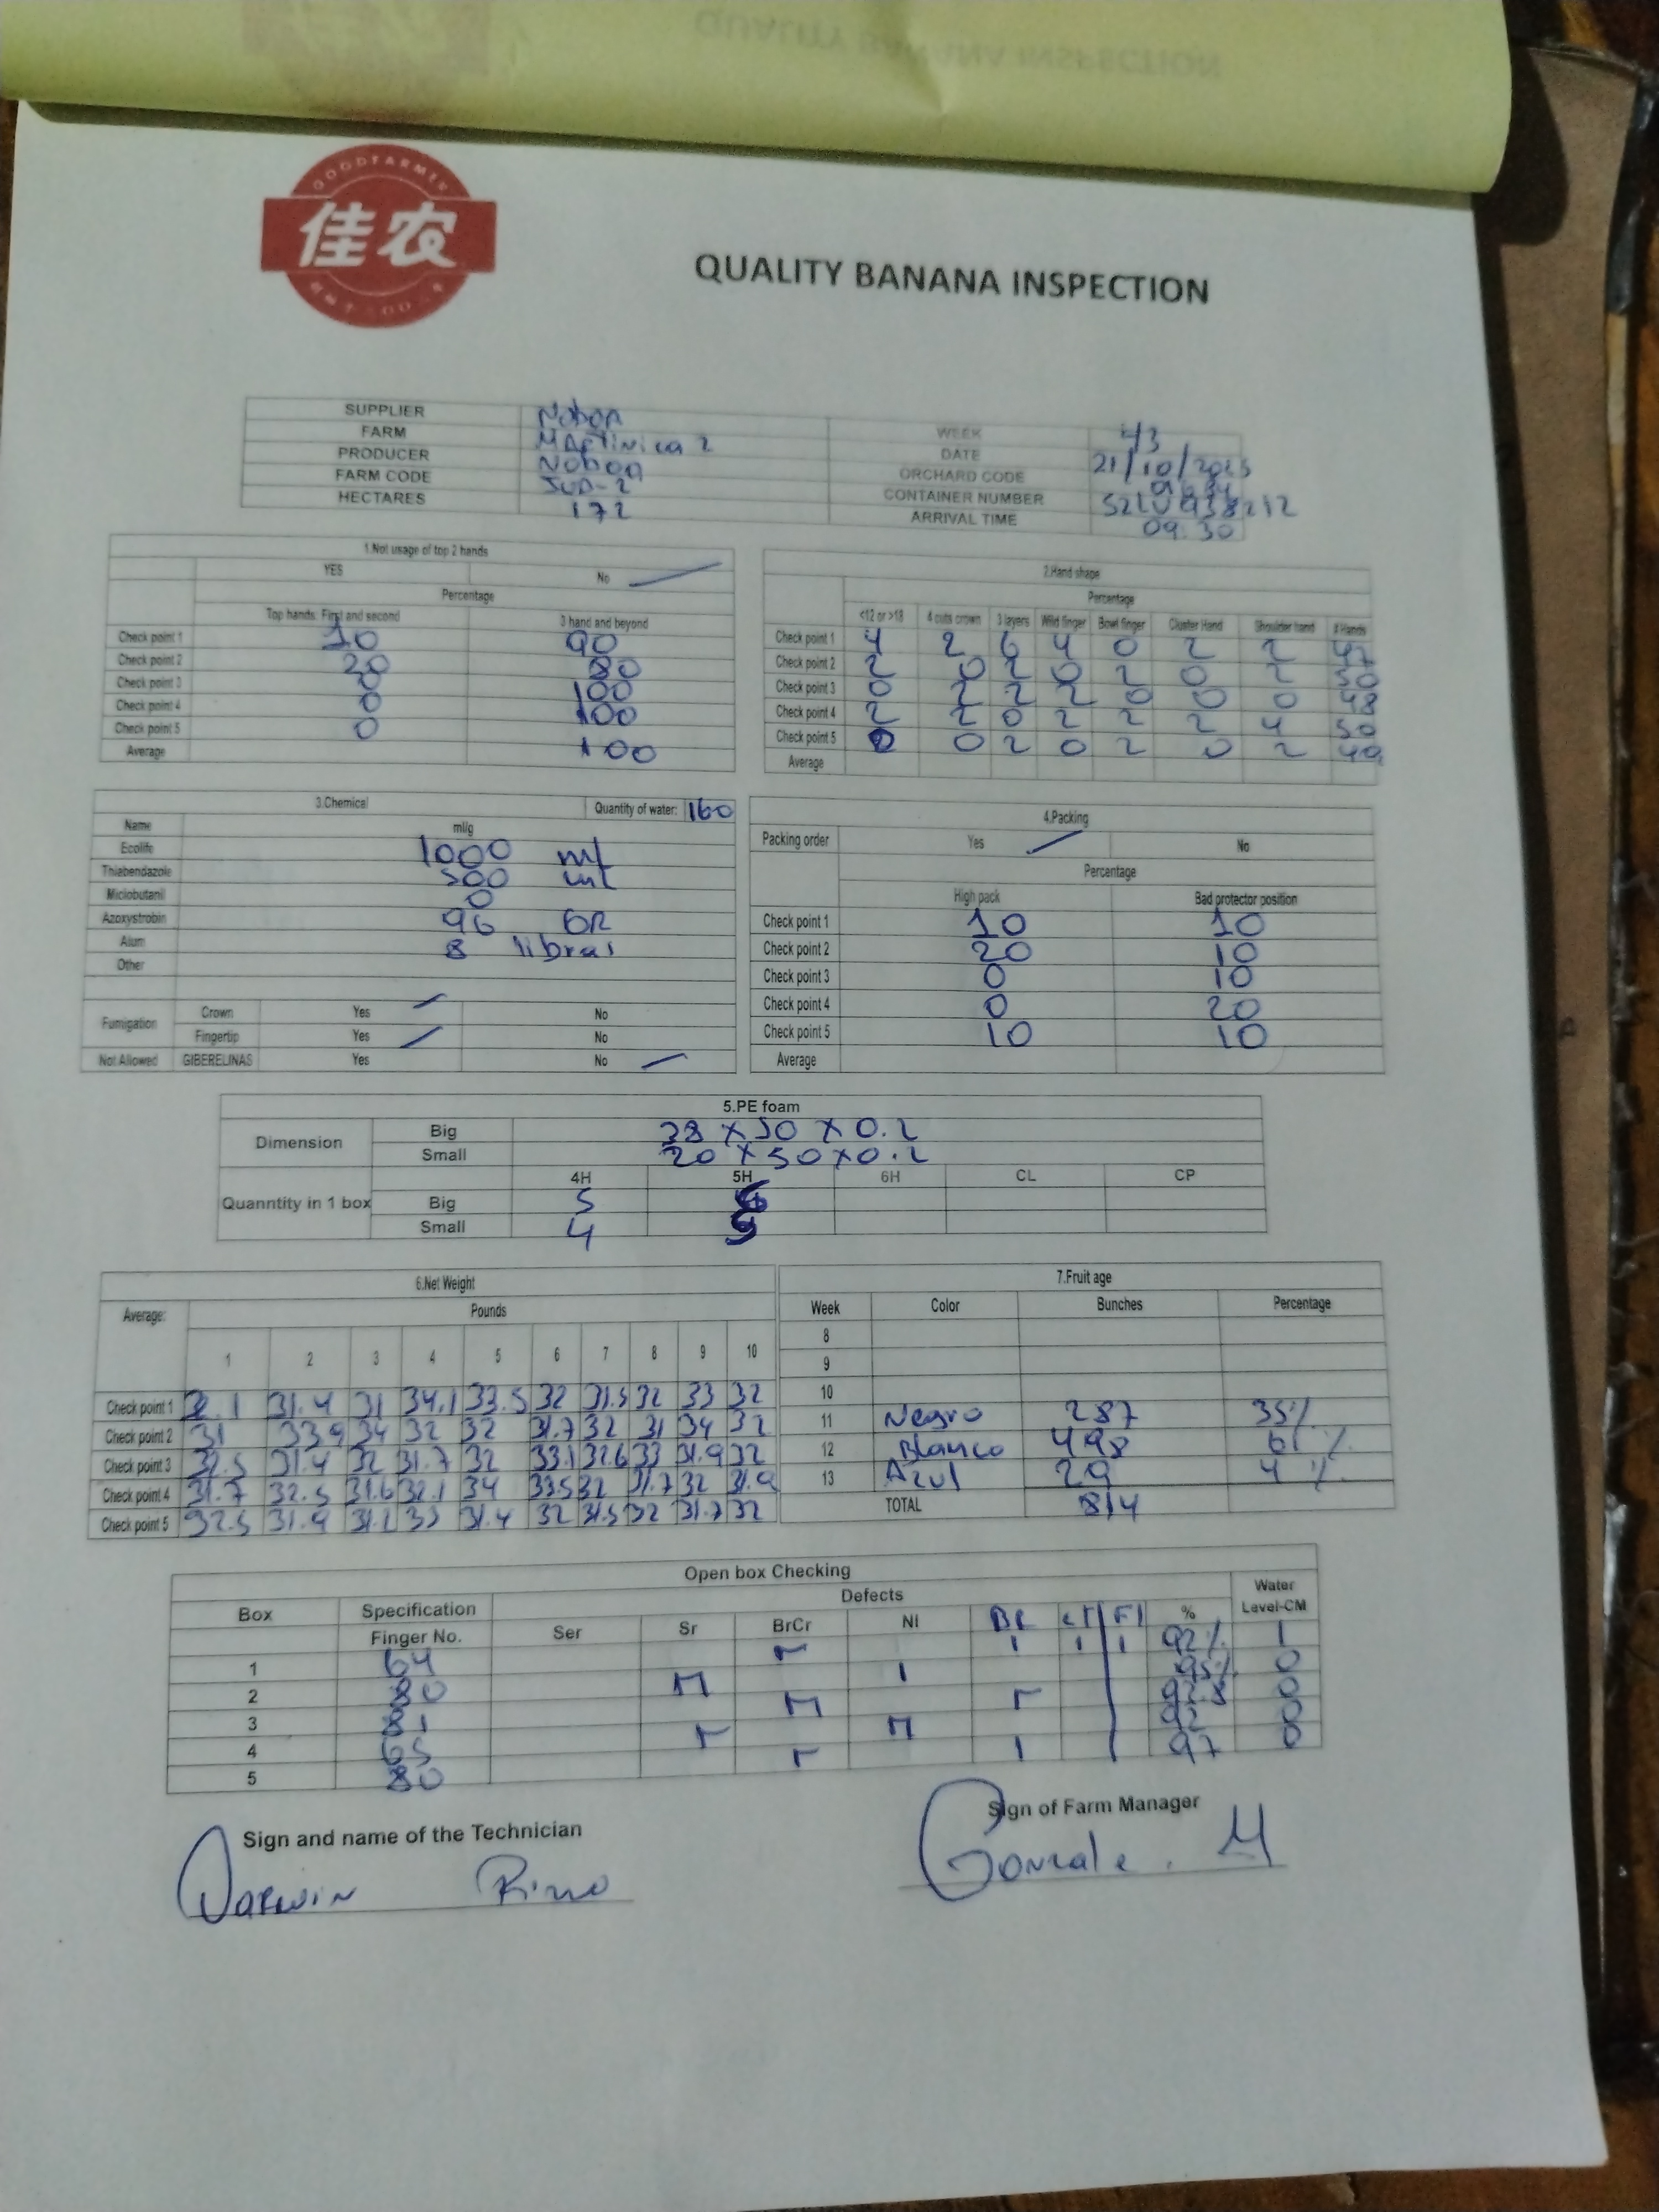 QUALITY BANANA INSPECTION
GOODFARMER
佳农
QUALITY BANANA INSPECTION
SUPPLIER Noboa
FARM Martinica 2 WEEK 43
PRODUCER Noboa DATE 21/10/2025
FARM CODE ORCHARD CODE
HECTARES 172 CONTAINER NUMBER SZLU 938212
ARRIVAL TIME 09:30
1.Not usage of top 2 hands
YES No
Percentage
Top hands: First and second 3 hand and beyond
Check point 1 10 90
Check point 2 20 80
Check point 3 0 100
Check point 4 0 100
Check point 5 0
Average 100
2.Hand shape
Percentage
<12 or >18 4 cuts crown 3 layers Wild finger Bowl finger Cluster Hand Shoulder hand # Hands
Check point 1 4 2 6 4 0 2 2 47
Check point 2 2 0 2 0 2 0 2 50
Check point 3 0 2 2 2 0 0 0 48
Check point 4 2 2 0 2 2 2 4 50
Check point 5 0 0 2 0 2 0 2 49
Average
3.Chemical Quantity of water: 160
Name ml/g
Ecolife 1000 ml
Thiabendazole 500 ml
Miclobutanil 0
Azoxystrobin 96 GR
Alum 8 libras
Other
Fumigation Crown Yes No
Fingertip Yes No
Not Allowed GIBERELINAS Yes No
4.Packing
Packing order Yes No
Percentage
High pack Bad protector position
Check point 1 10 10
Check point 2 20 10
Check point 3 0 10
Check point 4 0 20
Check point 5 10 10
Average
5.PE foam
Dimension Big 38 x 50 x 0.2
Small 20 x 50 x 0.2
4H 5H 6H CL CP
Quanntity in 1 box Big 5
Small 4
6.Net Weight
Average: Pounds
1 2 3 4 5 6 7 8 9 10
Check point 1 31.4 31 34.1 33.5 32 31.5 32 33 32
Check point 2 31 33.9 34 32 32 31.7 32 31 34 32
Check point 3 32.5 31.4 32 31.7 32 33.1 32.6 33 31.9 32
Check point 4 31.7 32.5 31.6 32.1 34 33.5 32 31.7 32 31.9
Check point 5 32.5 31.9 31.2 33 31.4 32 31.5 32 31.7 32
7.Fruit age
Week Color Bunches Percentage
8
9
10
11 Negro 287 35%
12 Blanco 498 61%
13 Azul 29 4%
TOTAL 814
Open box Checking
Box Specification Defects Water
Finger No. Ser Sr BrCr NI BR CT FI % Level-CM
1 64 92% 1
2 80 95% 0
3 81 0
4 65 92 0
5 80 97 0
Sign and name of the Technician Sign of Farm Manager
Darwin Gonzale. M